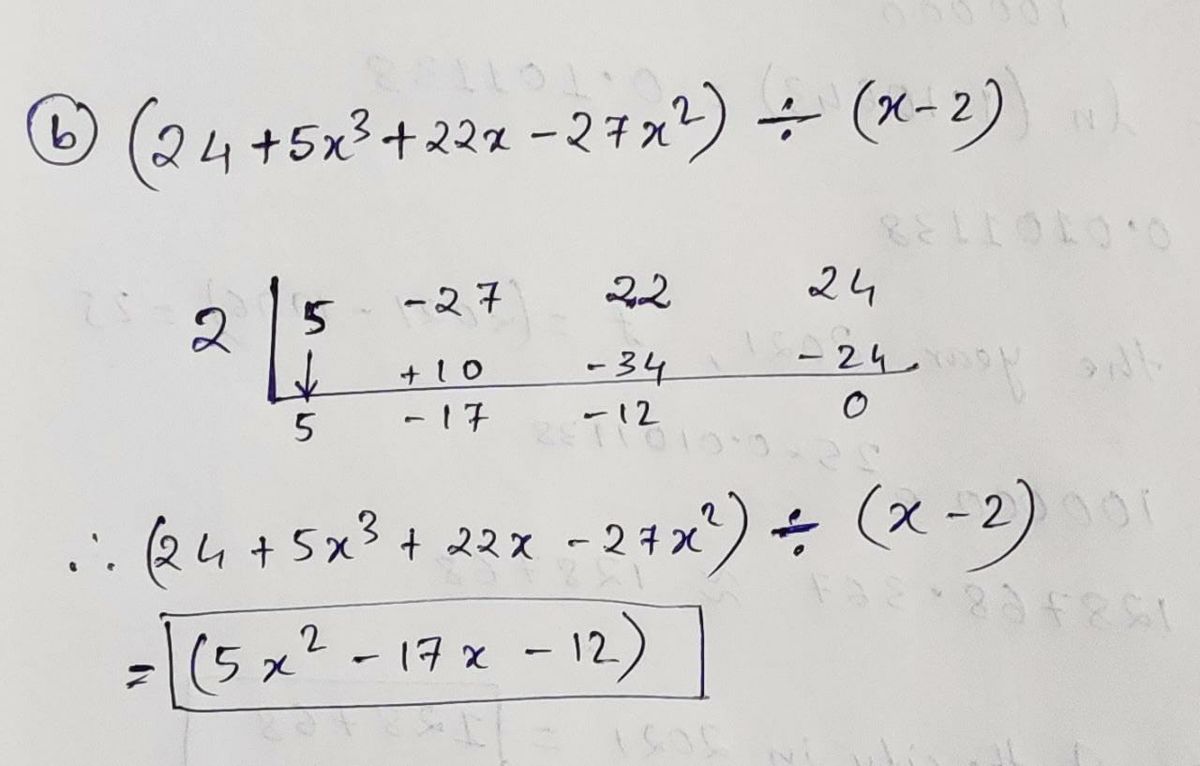 (b) (24 + 5x³ + 22x - 27x²) ÷ (x - 2)
2 | 5 -27 22 24
↓ +10 -34 -24
5 -17 -12 0
∴ (24 + 5x³ + 22x - 27x²) ÷ (x - 2)
= (5x² - 17x - 12)